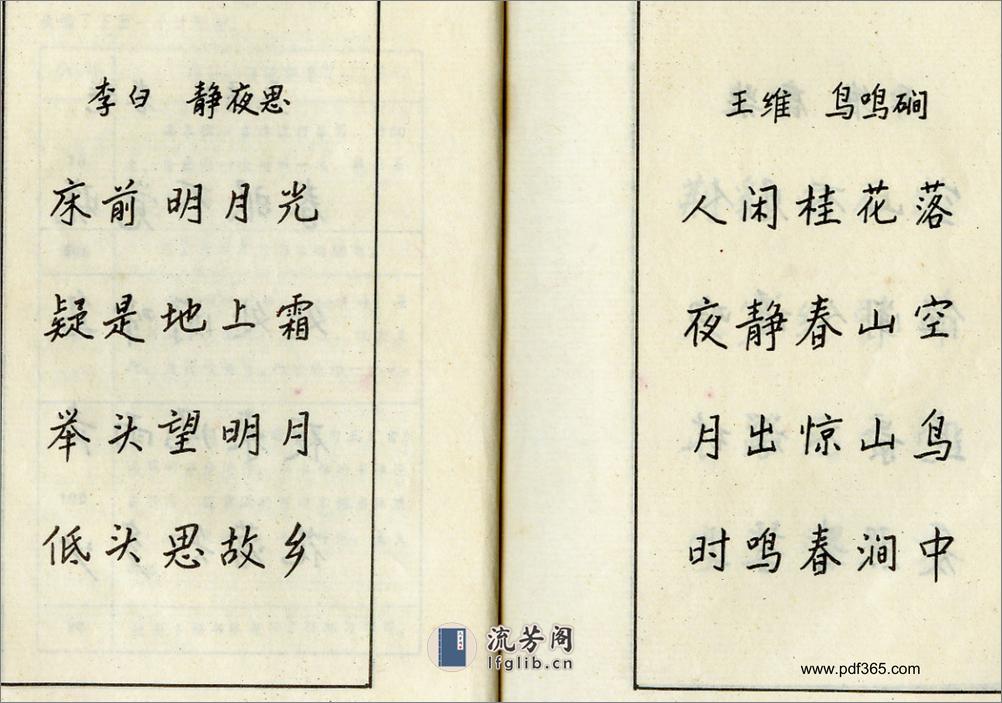 李白 静夜思
床前明月光
疑是地上霜
举头望明月
低头思故乡
王维 鸟鸣磵
人闲桂花落
夜静春山空
月出惊山鸟
时鸣春涧中
流芳阁
lfglib.cn
www.pdf365.com